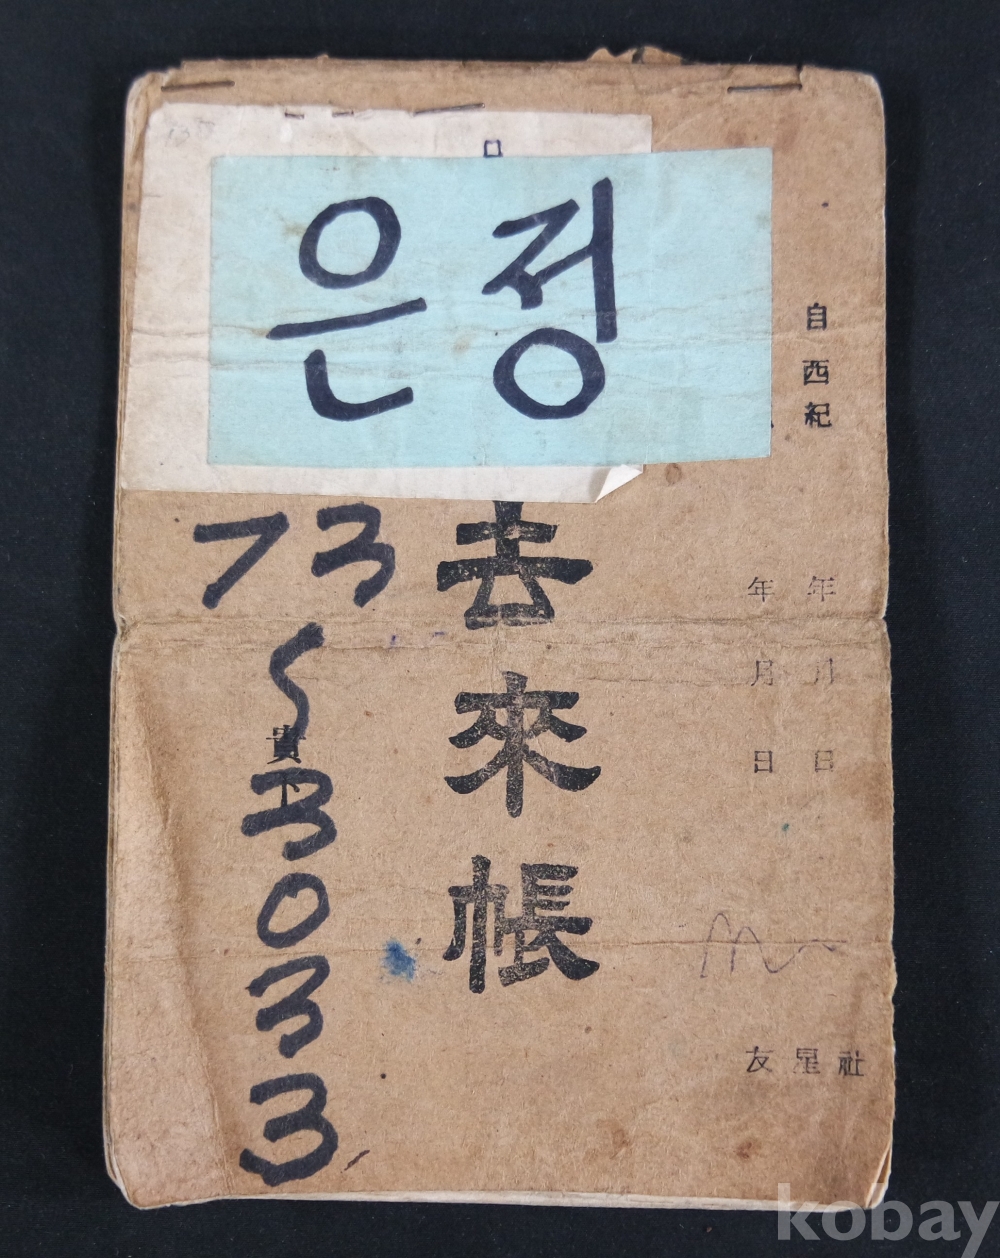 은정
自西紀 年 月 日
年 月 日
去來帳
73
貴下
<30333
友星社
kobay